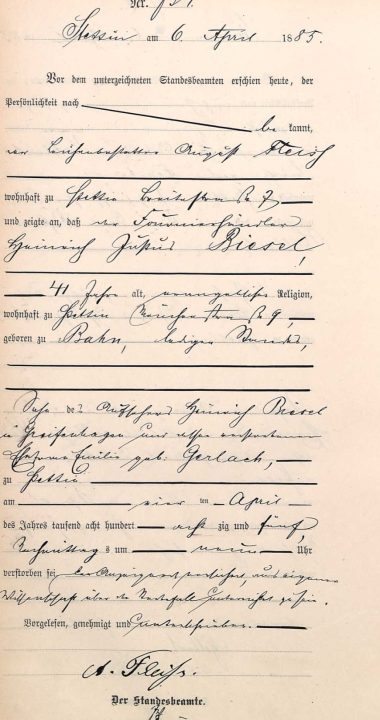 Nr.
Stettin am 6 April 1885.
Vor dem unterzeichneten Standesbeamten erschien heute, der
Persönlichkeit nach
be kannt,
der Leichenbestatter August
wohnhaft zu Stettin Breitestraße 7
und zeigte an, daß der Fournierhändler
Heinrich Justus Biesel,
41 Jahre alt, evangelischer Religion,
wohnhaft zu Stettin 9,
geboren zu Bahn, ledigen Standes,
Sohn des Aufsehers Heinrich Biesel
in Greifenhagen und dessen verstorbenen
Ehefrau Emilie geb: Gerlach,
zu Stettin
am vier ten April
des Jahres tausend acht hundert acht zig und fünf,
Nachmittag s um neun Uhr
verstorben sei, der Anzeigende versichert, aus eigener
Wissenschaft über den Sterbefall unterrichtet zu sein.
Vorgelesen, genehmigt und unterschrieben.
A.
Der Standesbeamte.